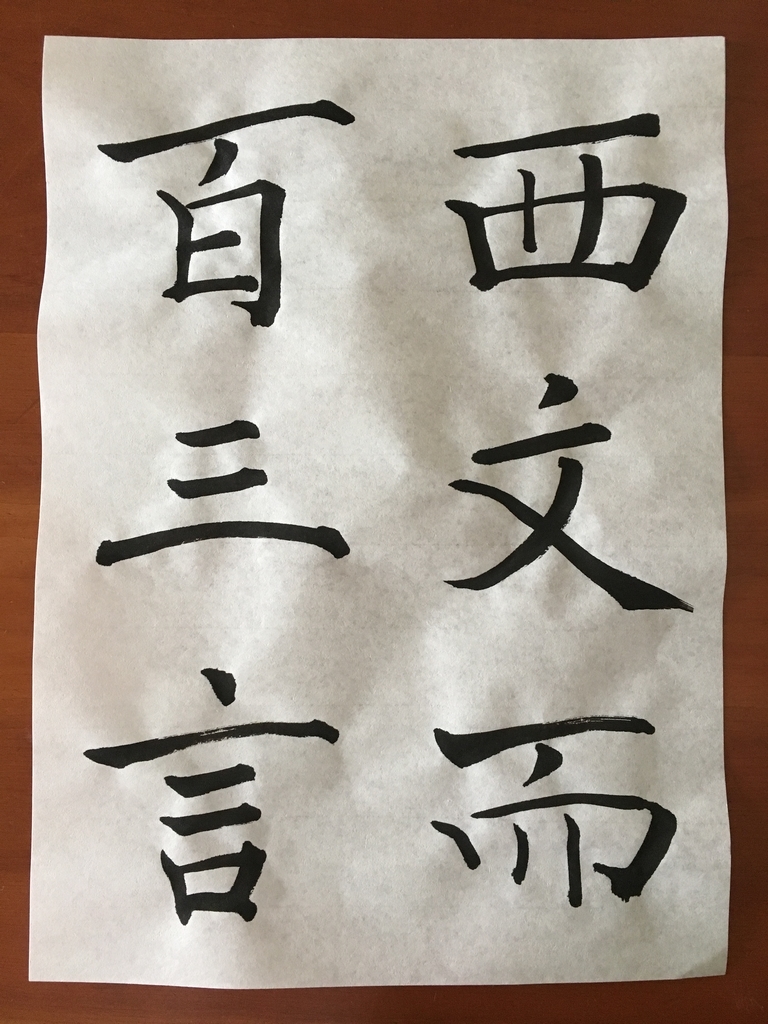 西文而
百三言